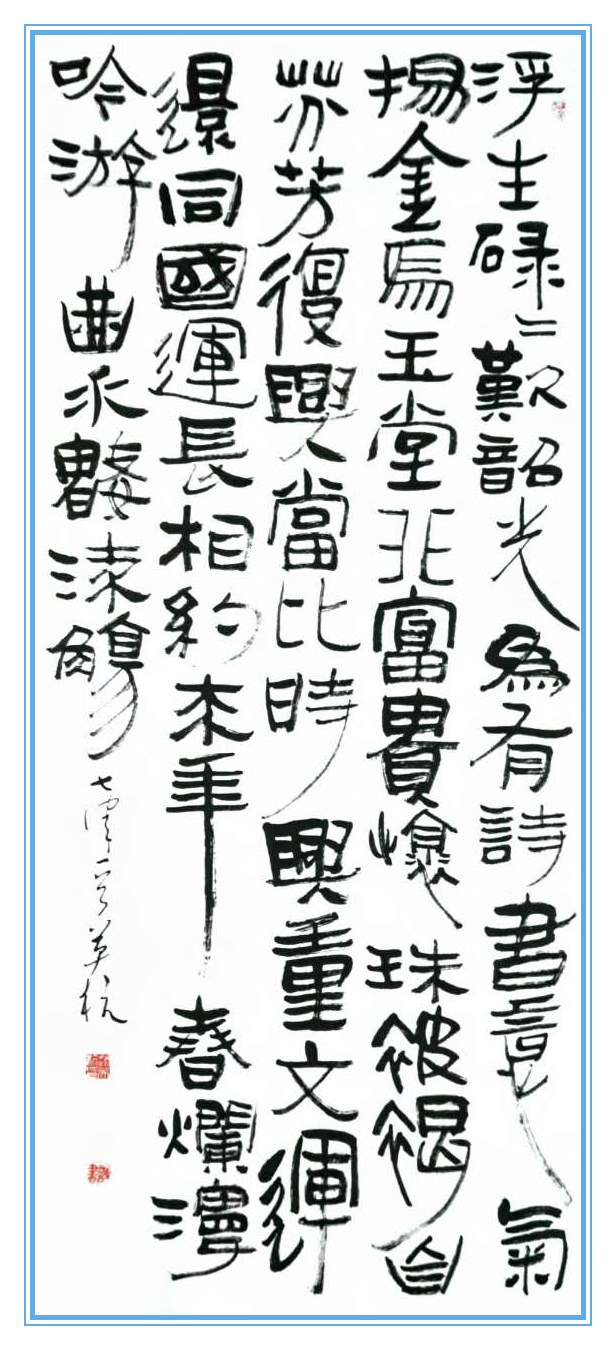 浮生碌〻歎韶光為有詩書意氣
揚金馬玉堂非富貴懷珠被褐自
芬芳復興當比時興重文運
還同國運長相約来年春爛漫
吟游曲水流觴七律一首